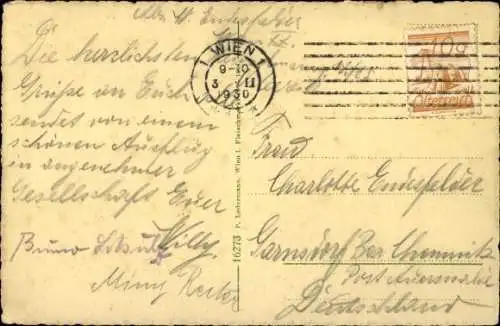 Die herzlichsten
Grüsse an Euch
sendet von einem
schönen Ausflug
in angenehmer
Gesellschaft Euer
Willy
Bruno
Miny
1 WIEN 1
9-10
3 II
1930
10g
Österreich
16273 P. Ledermann, Wien I. Fleischm
Frau
Charlotte Endesfelder
Garnsdorf Bez Chemnitz
Post Auerswalde
Deutschland